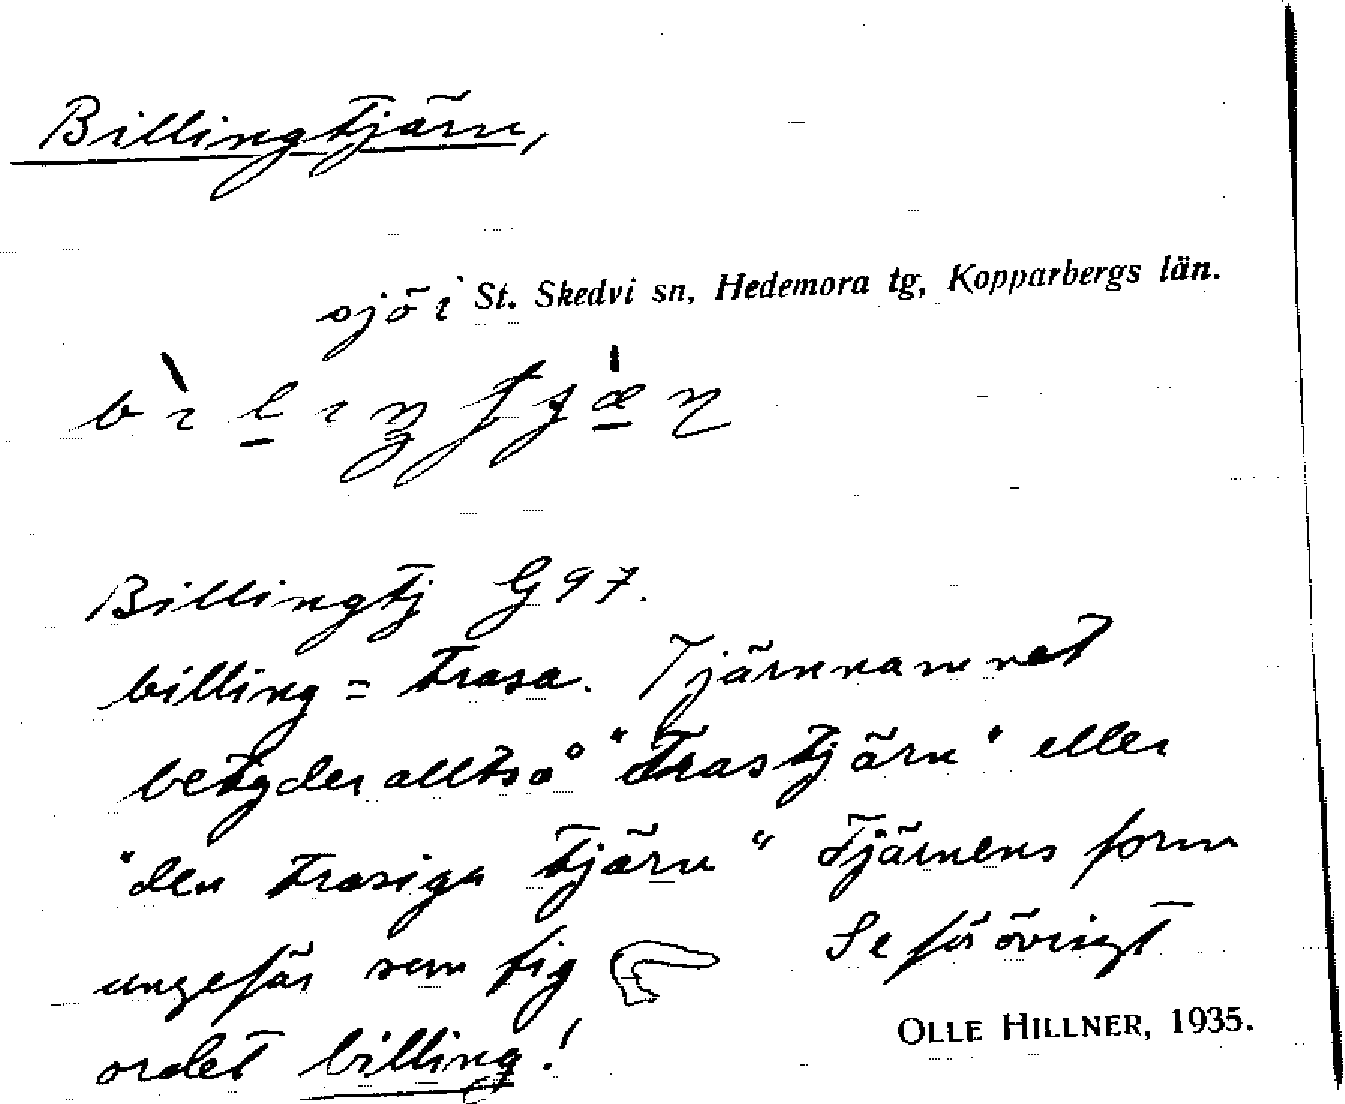 Billingtjärn,
sjö i St. Skedvi sn, Hedemora tg, Kopparbergs län.
Billingtj G 97.
billing = trasa. Tjärnnamnet
betyder alltså "Trastjärn" eller
"den trasiga tjärn" Tjärnens form
ungefär som fig Se för övrigt
ordet billing!
OLLE HILLNER, 1935.